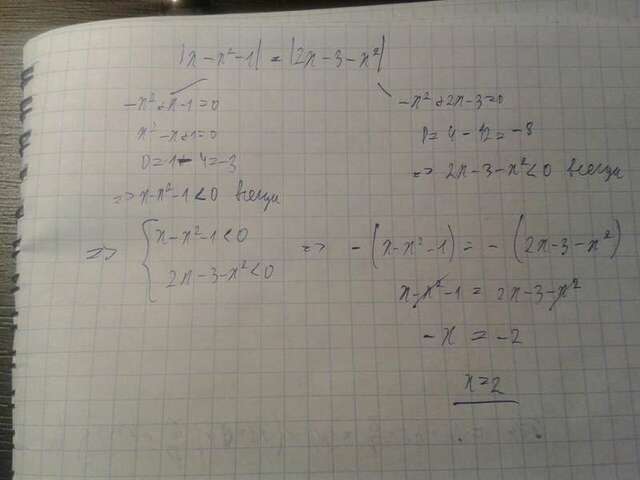 |x-x²-1| = |2x-3-x²|
-x²+x-1=0
x²-x+1=0
D=1-4=-3
=> x-x²-1<0 всегда
-x²+2x-3=0
D=4-12=-8
=> 2x-3-x²<0 всегда
=> { x-x²-1<0
2x-3-x²<0
=> -(x-x²-1) = -(2x-3-x²)
x-x²-1 = 2x-3-x²
-x = -2
x=2